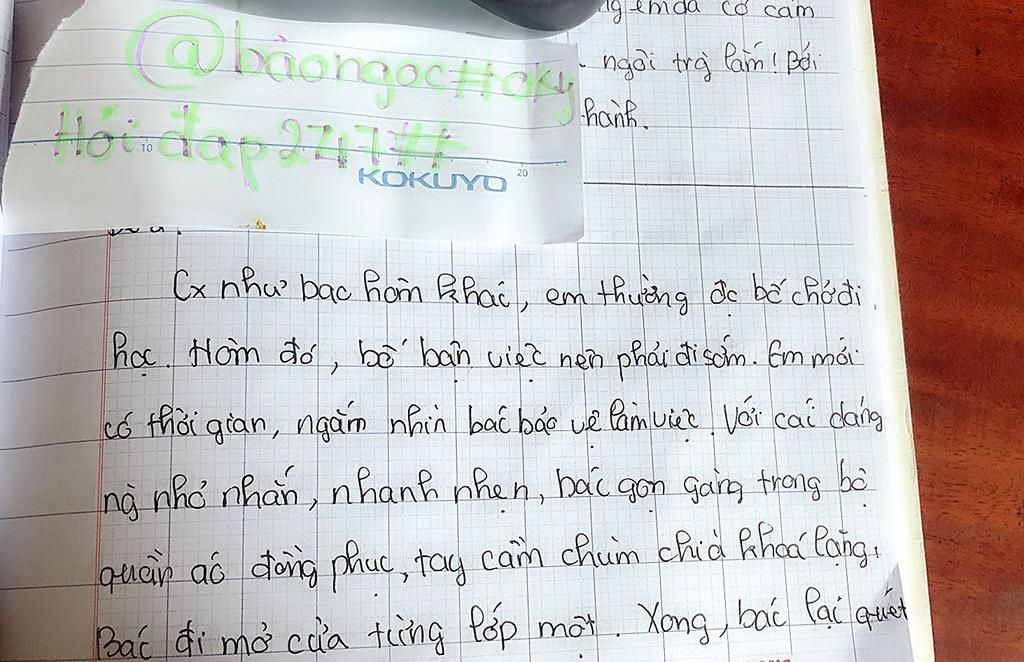 ng em đã có cảm
ngôi trg lắm! Bởi
hành.
@bảongọc##oky
Hỏi đáp247##
10
KOKUYO
20
Cx như bac hôm khác, em thường đc bố chở đi
học. Hôm đó, bố bận việc nên phải đi sớm. Em mới
có thời gian, ngắm nhìn bác bảo vệ làm việc. Với cái dáng
ng nhỏ nhắn, nhanh nhẹn, bác gọn gàng trong bộ
quần áo đồng phục, tay cầm chùm chìa khoá lặng,
Bác đi mở cửa từng lớp một. Xong, bác lại quét